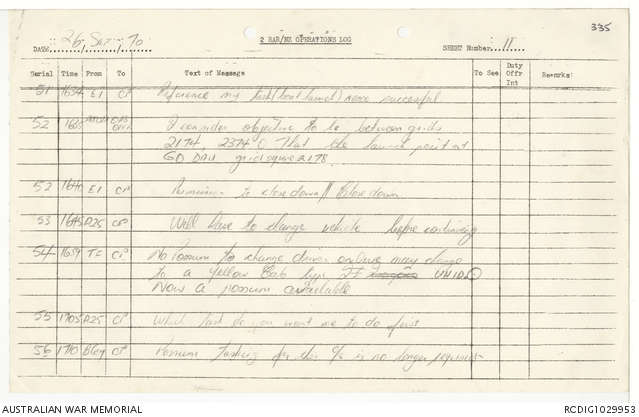 335
26 Sep 70
2 RAR/NZ OPERATIONS LOG
DATE
SHEET Number 11
Serial Time From To Text of Message To See Duty Offr Int Remarks
51 1634 E1 CP Reference my task (boat launch) now successful
52 CP I consider objective to be between grids
2174, 2374 That the launch point at
GO DAU grid square 2178
52 1640 E1 CP Permission to close down // Close down
53 1645 R25 CP Will have to change vehicle before continuing
54 1659 TC CP No Possum to change driver and may change
to a Yellow Cab type If UNID
Now a possum available
55 1705 R25 CP Which task do you want me to do first
56 1710 CP Possum Tasking for this C/S is no longer required
AUSTRALIAN WAR MEMORIAL RCDIG1029953